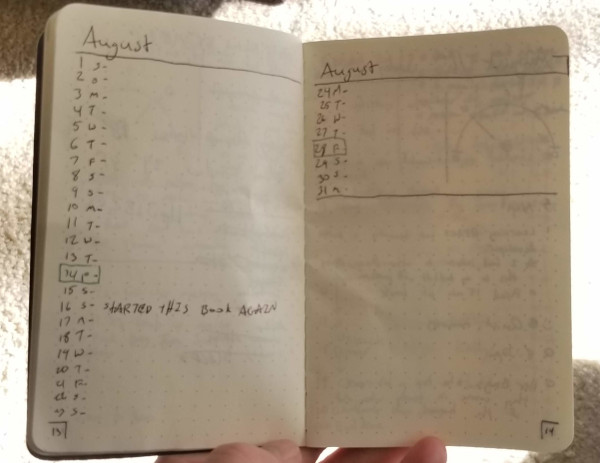 August
1 S-
2 S-
3 M-
4 T-
5 W-
6 T-
7 F-
8 S-
9 S-
10 M-
11 T-
12 W-
13 T-
14 F-
15 S-
16 S- STARTED THIS Book AGAIN
17 M-
18 T-
19 W-
20 T-
21 F-
22 S-
23 S-
13
August
24 M-
25 T-
26 W-
27 T-
28 F-
29 S-
30 S-
31 M-
14